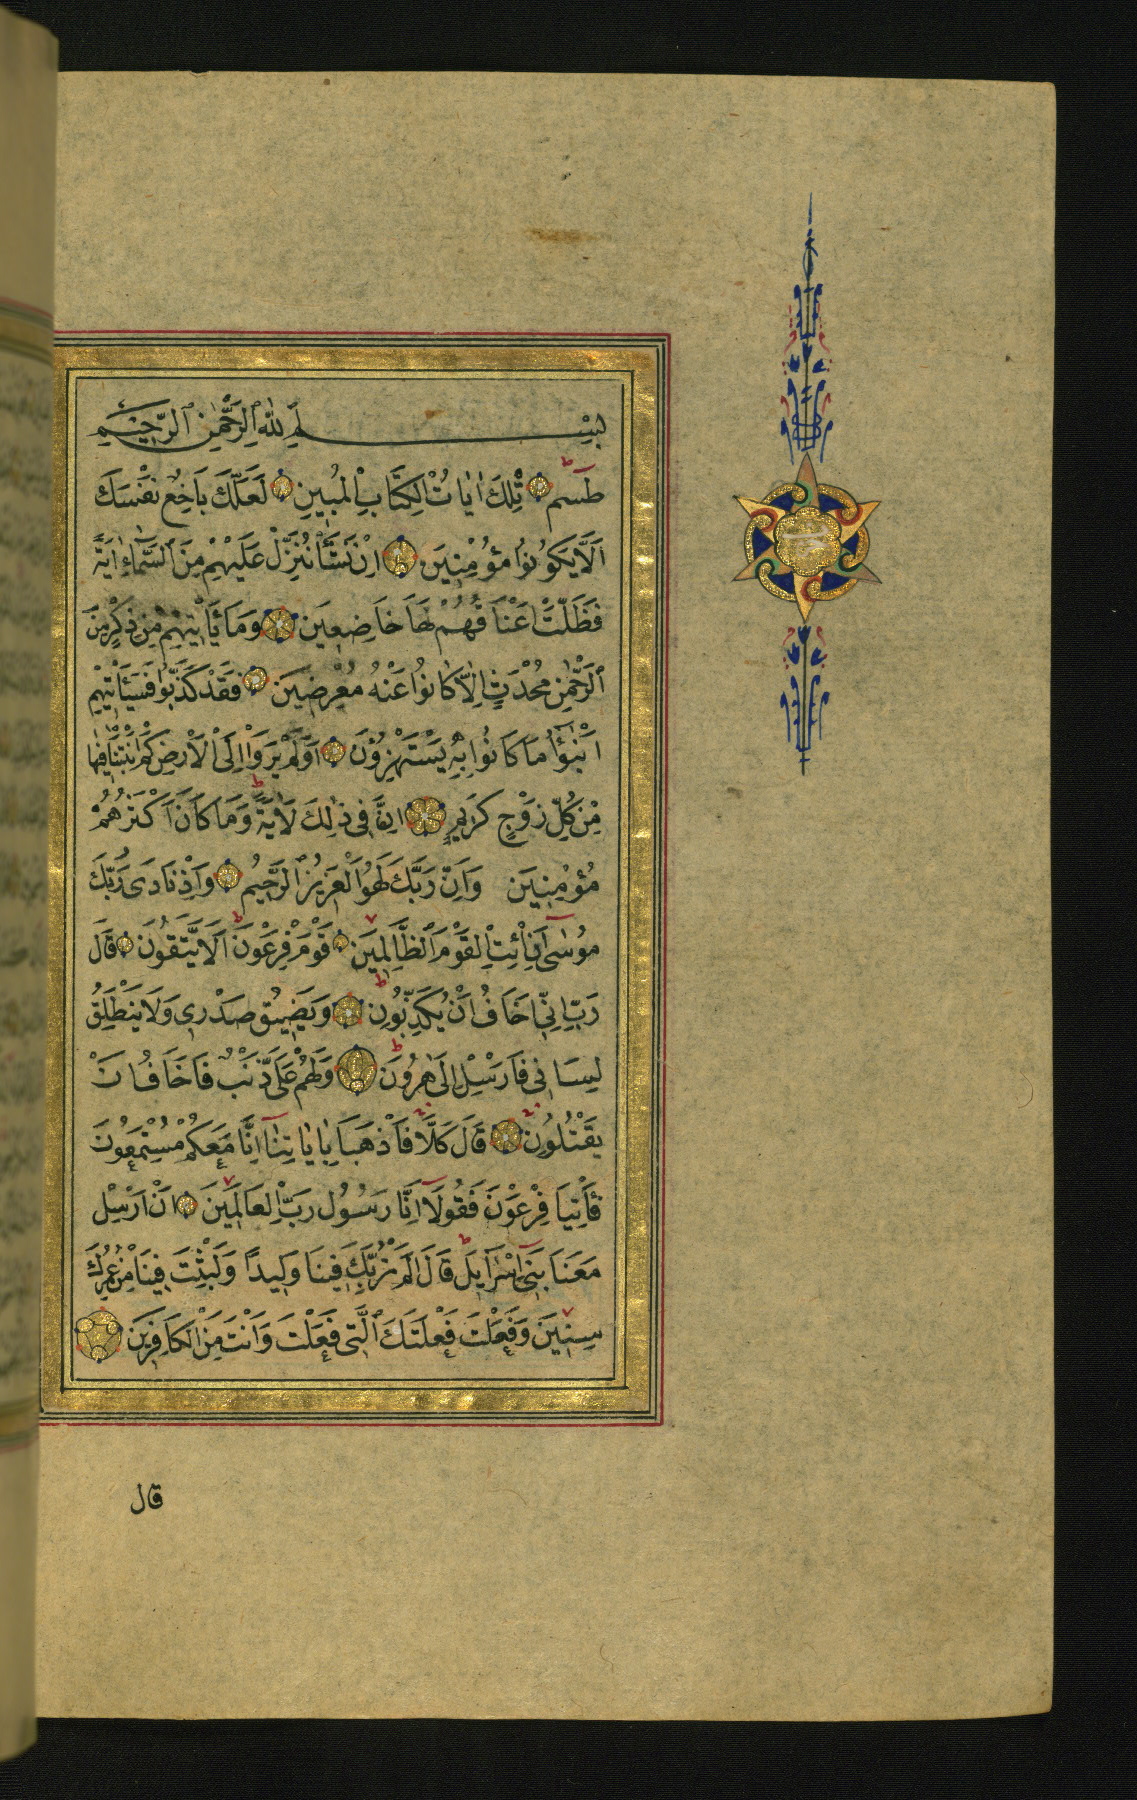 بِسْمِ اللهِ الرَّحْمٰنِ الرَّحِيمِ
طٰسٓمٓ تِلْكَ اٰيَاتُ الْكِتَابِ الْمُبِينِ لَعَلَّكَ بَاخِعٌ نَفْسَكَ
اَلَّا يَكُونُوا مُؤْمِنِينَ اِنْ نَشَأْ نُنَزِّلْ عَلَيْهِمْ مِنَ السَّمَاءِ اٰيَةً
فَظَلَّتْ اَعْنَاقُهُمْ لَهَا خَاضِعِينَ وَمَا يَأْتِيهِمْ مِنْ ذِكْرٍ مِنَ
الرَّحْمٰنِ مُحْدَثٍ اِلَّا كَانُوا عَنْهُ مُعْرِضِينَ فَقَدْ كَذَّبُوا فَسَيَأْتِيهِمْ
اَنْبٰٓؤُا مَا كَانُوا بِهِ يَسْتَهْزِؤُنَ اَوَلَمْ يَرَوْا اِلَى الْاَرْضِ كَمْ اَنْبَتْنَا فِيهَا
مِنْ كُلِّ زَوْجٍ كَرِيمٍ اِنَّ فِي ذٰلِكَ لَاٰيَةً وَمَا كَانَ اَكْثَرُهُمْ
مُؤْمِنِينَ وَاِنَّ رَبَّكَ لَهُوَ الْعَزِيزُ الرَّحِيمُ وَاِذْ نَادٰى رَبُّكَ
مُوسٰٓى اَنِ ائْتِ الْقَوْمَ الظَّالِمِينَ قَوْمَ فِرْعَوْنَ اَلَا يَتَّقُونَ قَالَ
رَبِّ اِنِّي اَخَافُ اَنْ يُكَذِّبُونِ وَيَضِيقُ صَدْرِي وَلَا يَنْطَلِقُ
لِسَانِي فَاَرْسِلْ اِلٰى هٰرُونَ وَلَهُمْ عَلَيَّ ذَنْبٌ فَاَخَافُ اَنْ
يَقْتُلُونِ قَالَ كَلَّا فَاذْهَبَا بِاٰيَاتِنَا اِنَّا مَعَكُمْ مُسْتَمِعُونَ
فَأْتِيَا فِرْعَوْنَ فَقُولَا اِنَّا رَسُولُ رَبِّ الْعَالَمِينَ اَنْ اَرْسِلْ
مَعَنَا بَنِي اِسْرَائِلَ قَالَ اَلَمْ نُرَبِّكَ فِينَا وَلِيدًا وَلَبِثْتَ فِينَا مِنْ عُمُرِكَ
سِنِينَ وَفَعَلْتَ فَعْلَتَكَ الَّتِي فَعَلْتَ وَاَنْتَ مِنَ الْكَافِرِينَ
قال